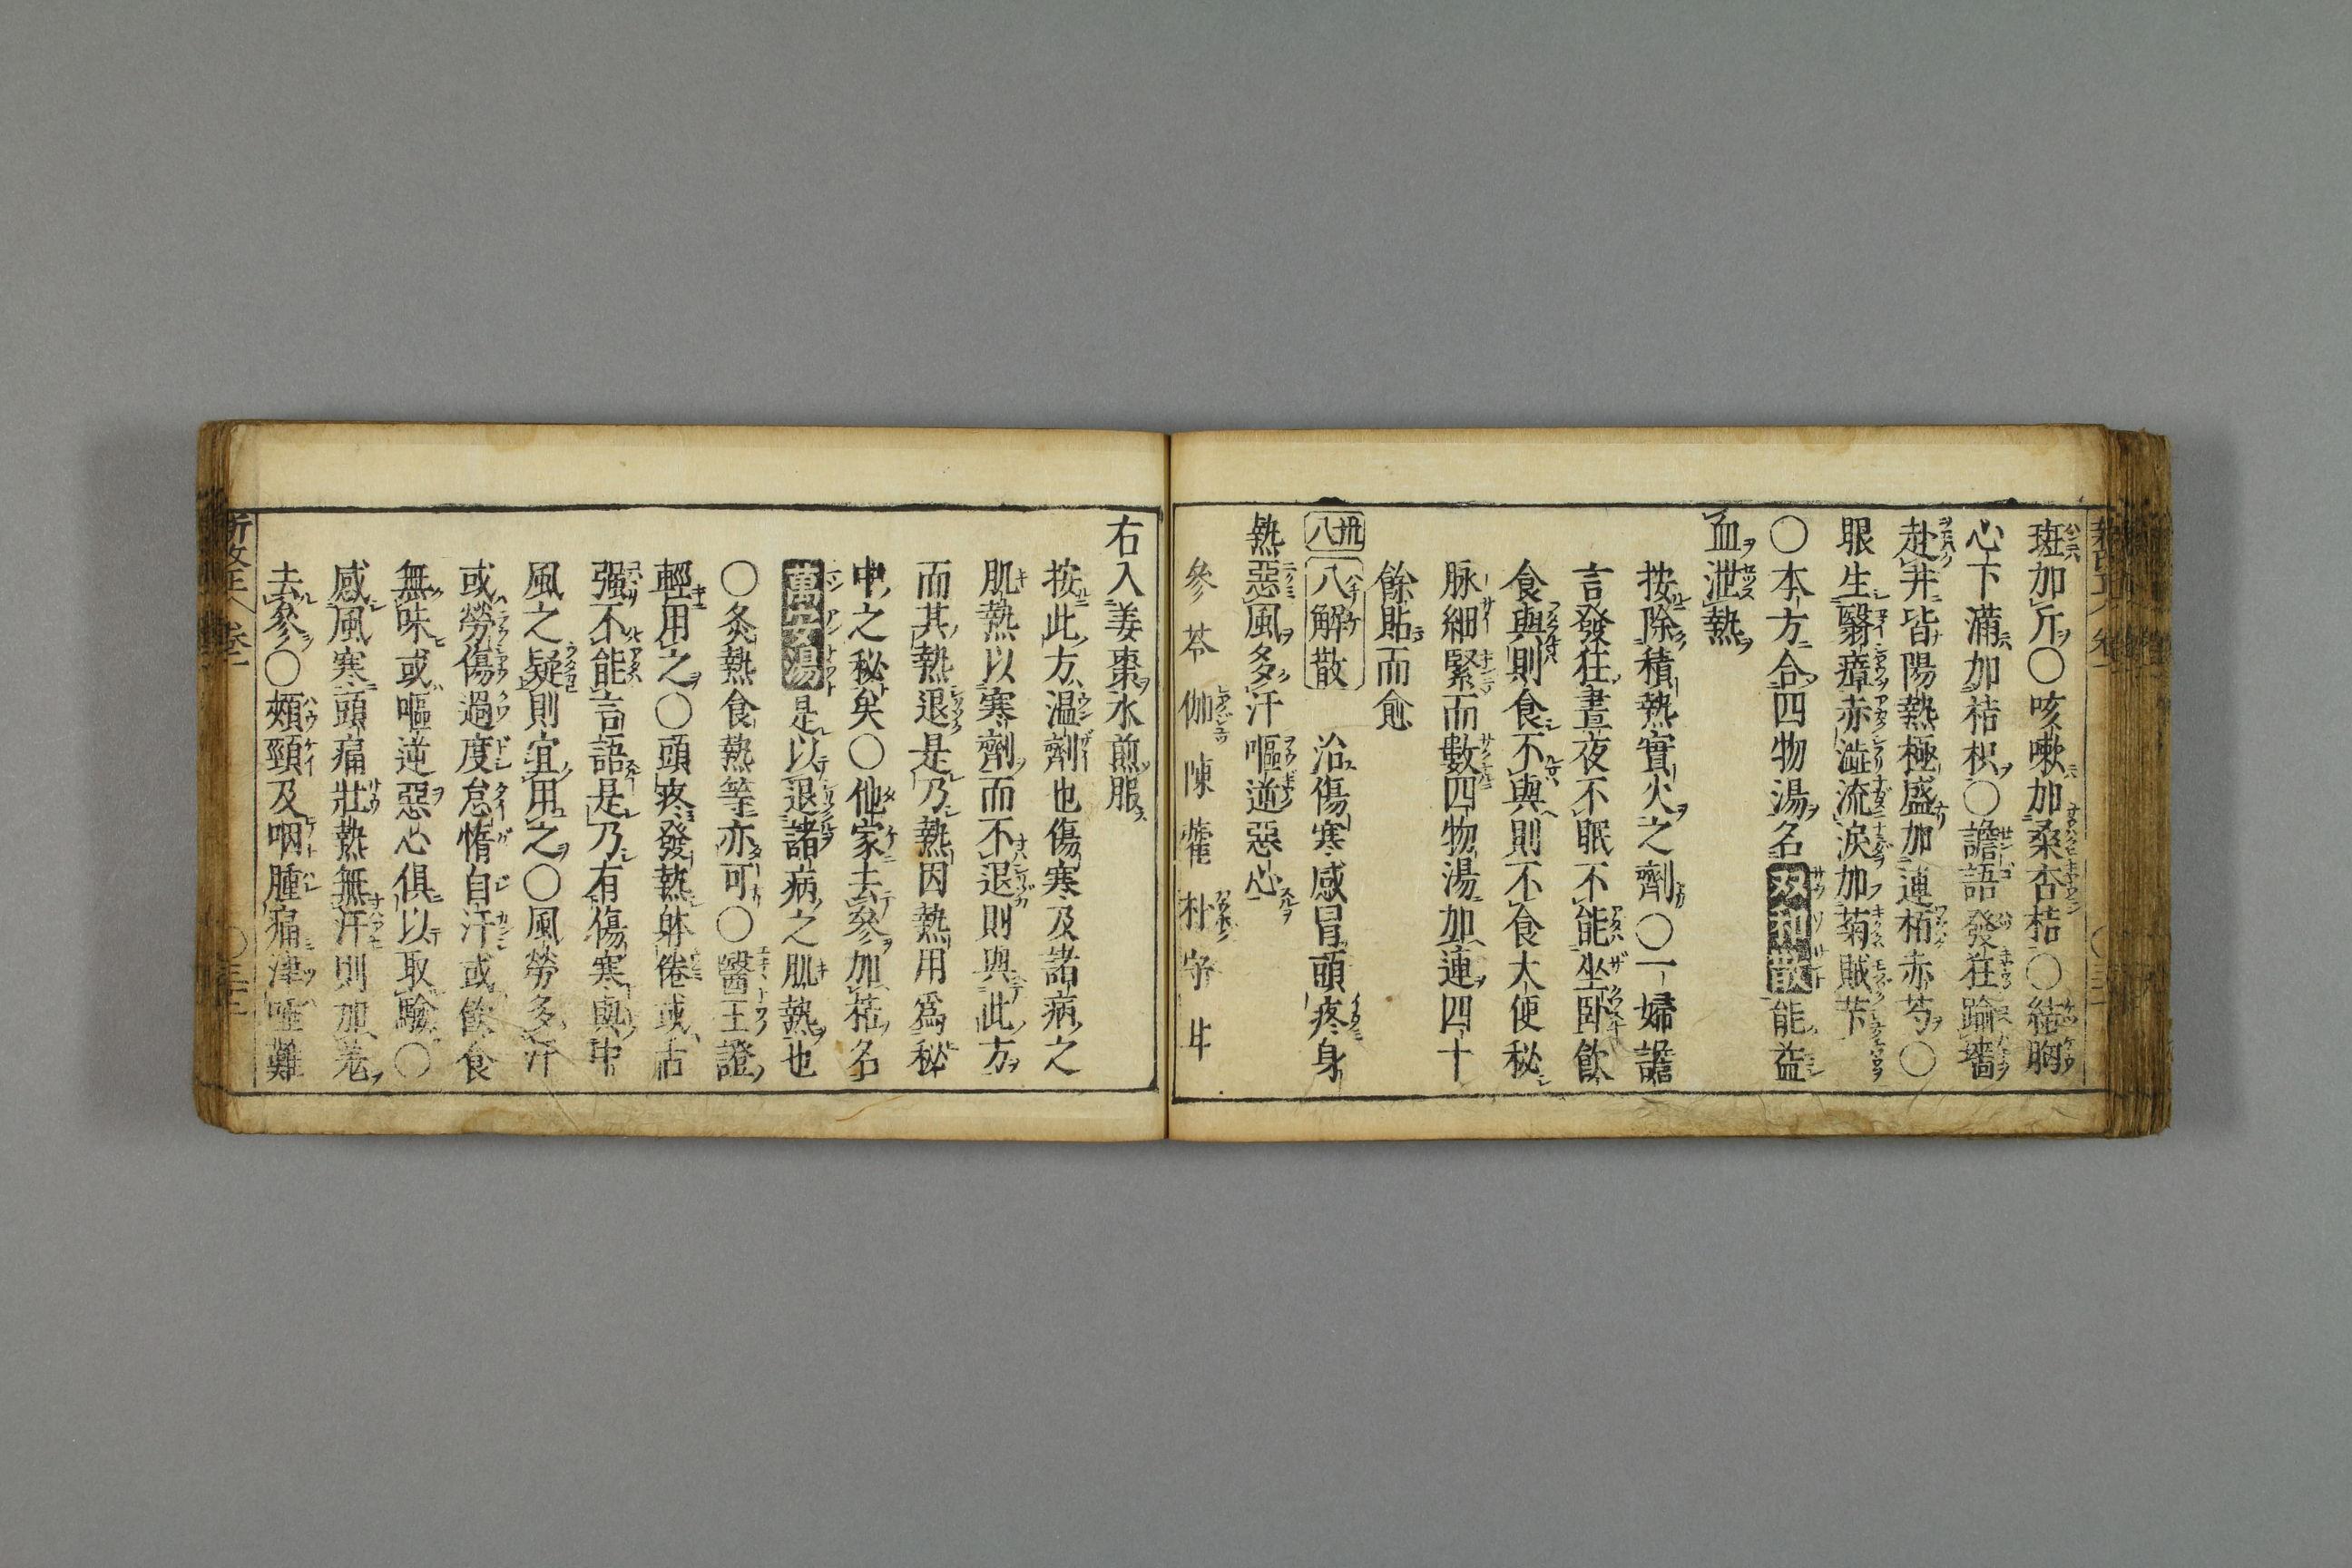 斑加斤〇咳嗽加桑杏桔〇結胸
心下滿加桔枳〇譫語發狂踰墻
赴井皆陽熱極盛加連栢赤芍〇
眼生翳瘴赤澁流淚加菊賊芐
〇本方合四物湯名双和散能益
血泄熱
按除積熱實火之劑〇一婦譫
言發狂晝夜不眠不能坐臥飲
食與則食不與則不食大便秘
脉細緊而數四物湯加連四十
餘貼而愈
卅八 八解散 治傷寒感冒頭疼身
熱惡風多汗嘔逆惡心
參苓伽陳藿朴 甘
右入姜棗水煎服
按此方温劑也傷寒及諸病之
肌熱以寒劑而不退則與此方
而其熱退是乃熱因熱用爲秘
中之秘矣〇他家去參加 名
萬安湯是以退諸病之肌熱也
〇灸熱食熱等亦可〇醫王證
輕用之〇頭疼發熱躰倦或舌
强不能言語是乃有傷寒與中
風之疑則宜用之〇風勞多汗
或勞傷過度怠惰自汗或飲食
無味或嘔逆惡心俱以取驗〇
感風寒頭痛壯熱無汗則加 
去參〇頰頸及咽腫痛津唾難